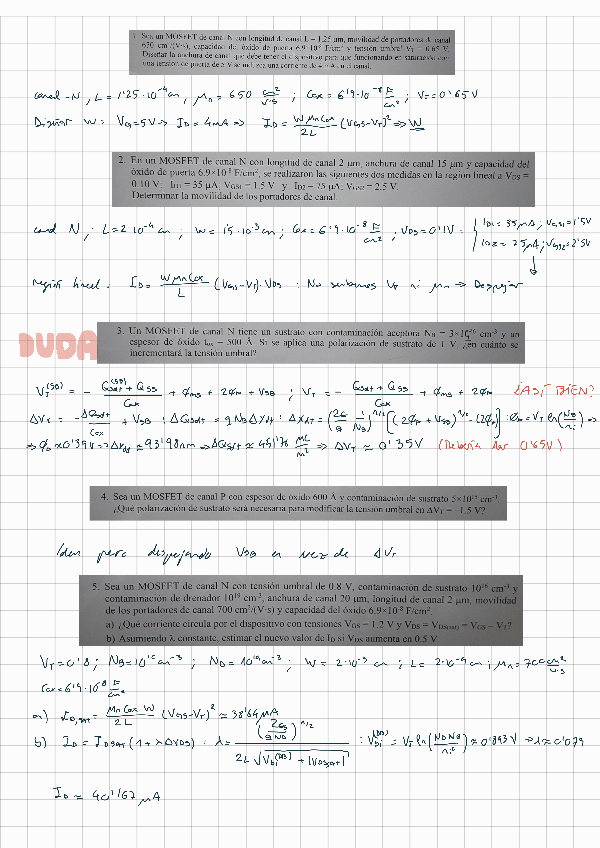 1. Sea un MOSFET de canal N con longitud de canal L = 1.25 μm, movilidad de portadores de canal
650 cm²/(V·s), capacidad del óxido de puerta 6.9×10⁻⁸ F/cm² y tensión umbral V_T = 0.65 V.
Diseñar la anchura de canal que debe tener el dispositivo para que funcionando en saturación con
una tensión de puerta de 5 V se induzca una corriente de 4 mA en el canal.
canal-N, L = 1'25·10⁻⁴ cm, μn = 650 cm²/V·s ; Cox = 6'9·10⁻⁸ F/cm² ; V_T = 0'65 V
Diseñar W: V_G = 5V ⇒ I_D = 4mA ⇒ I_D = W μn Cox/2L (V_GS-V_T)² ⇒ W
2. En un MOSFET de canal N con longitud de canal 2 μm, anchura de canal 15 μm y capacidad del
óxido de puerta 6.9×10⁻⁸ F/cm², se realizaron las siguientes dos medidas en la región lineal a V_DS =
0.10 V: I_D1 = 35 μA, V_GS1 = 1.5 V y I_D2 = 75 μA; V_GS2 = 2.5 V.
Determinar la movilidad de los portadores de canal.
canal N, : L = 2·10⁻⁴ cm ; W = 15·10⁻³ cm ; Cox = 6'9·10⁻⁸ F/cm² ; V_DS = 0'1V = { I_D1 = 35μA ; V_GS1 = 1'5V
I_D2 = 75μA ; V_GS2 = 2'5V
región lineal. I_D = W μn Cox/L (V_GS-V_T)·V_DS : No sabemos V_T ni μn → Despejar
DUDA
3. Un MOSFET de canal N tiene un sustrato con contaminación aceptora N_B = 3×10¹⁶ cm⁻³ y un
espesor de óxido t_ox = 500 Å. Si se aplica una polarización de sustrato de 1 V, ¿en cuánto se
incrementará la tensión umbral?
V_T^(SB) = - Q_sdt^(SB) + Q_SS/Cox + φ_ms + 2φ_F + V_SB ; V_T = - Q_sdt + Q_SS/Cox + φ_ms + 2φ_F ¿ASÍ BIEN?
ΔV_T = -ΔQ_sdt/Cox + V_SB : ΔQ_sdt = q N_B ΔX_dt : ΔX_dT = (2ε/q 1/N_B)^1/2 [(2φ_F + V_SB)^1/2 - (2φ_F)] : φ_F = V_T ln(N_B/n_i) ⇒
⇒ φ_F ≈ 0'39V ⇒ ΔX_dt ≈ 93'98nm ⇒ ΔQ_sdt ≈ 451'76 μC/m² ⇒ ΔV_T ≈ 0'35V (Debería dar 0'65V)
4. Sea un MOSFET de canal P con espesor de óxido 600 Å y contaminación de sustrato 5×10¹⁵ cm⁻³.
¿Qué polarización de sustrato será necesaria para modificar la tensión umbral en ΔV_T = −1.5 V?
Idem pero despejando V_SB en vez de ΔV_T
5. Sea un MOSFET de canal N con tensión umbral de 0.8 V, contaminación de sustrato 10¹⁶ cm⁻³ y
contaminación de drenador 10¹⁹ cm⁻³, anchura de canal 20 μm, longitud de canal 2 μm, movilidad
de los portadores de canal 700 cm²/(V·s) y capacidad del óxido 6.9×10⁻⁸ F/cm².
a) ¿Qué corriente circula por el dispositivo con tensiones V_GS = 1.2 V y V_DS = V_DS(sat) = V_GS − V_T?
b) Asumiendo λ constante, estimar el nuevo valor de I_D si V_DS aumenta en 0.5 V.
V_T = 0'8 ; N_B = 10¹⁶ cm⁻³ ; N_D = 10¹⁹ cm⁻³ ; W = 2·10⁻³ cm ; L = 2·10⁻⁴ cm ; μn = 700 cm²/V·s
Cox = 6'9·10⁻⁸ F/cm²
a) I_D,sat = μn Cox W/2L (V_GS-V_T)² ≈ 38'64 μA
b) I_D = I_DSAT (1 + λ ΔV_DS) : λ = (2ε_s/q N_B)^1/2 / 2L √(V_bi^(DB) + |V_DS,sat|) : V_bi^(DB) = V_T ln(N_D N_B/n_i²) ≈ 0'893 V ⇒ λ ≈ 0'079
I_D ≈ 40'167 μA